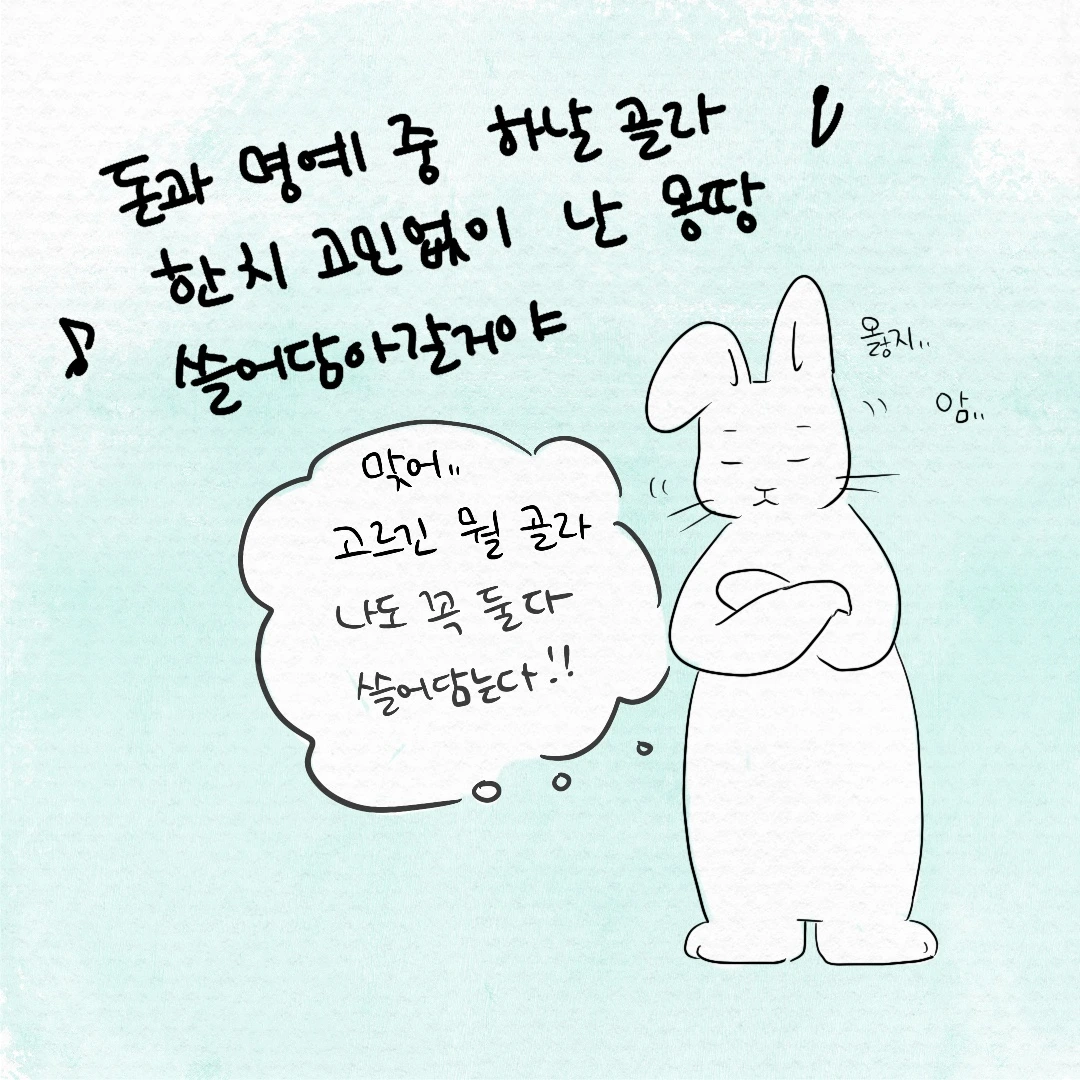 돈과 명예 중 하날 골라
한치 고민없이 난 몽땅
쓸어담아갈거야
옳지..
암..
맞어..
고르긴 뭘 골라
나도 꼭 둘다
쓸어담는다!!